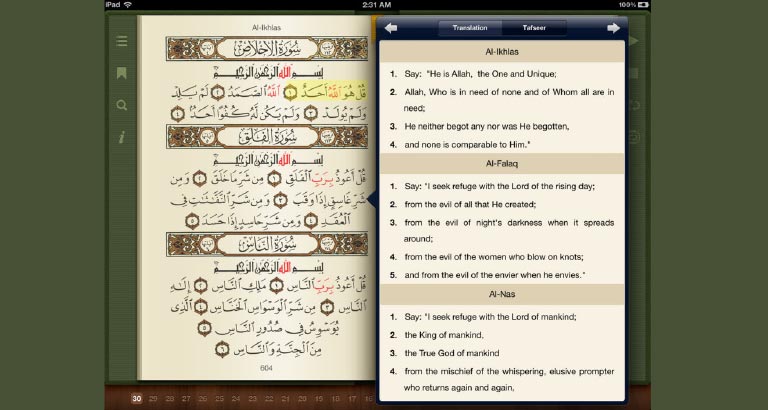 iPad
2:31 AM
100%
Al-Ikhlas
سُورَةُ الإِخْلَاصِ
بِسْمِ اللَّهِ الرَّحْمَٰنِ الرَّحِيمِ
قُلْ هُوَ اللَّهُ أَحَدٌ ١ اللَّهُ الصَّمَدُ ٢ لَمْ يَلِدْ
وَلَمْ يُولَدْ ٣ وَلَمْ يَكُن لَّهُ كُفُوًا أَحَدٌ ٤
سُورَةُ الفَلَقِ
بِسْمِ اللَّهِ الرَّحْمَٰنِ الرَّحِيمِ
قُلْ أَعُوذُ بِرَبِّ الْفَلَقِ ١ مِن شَرِّ مَا خَلَقَ ٢ وَمِن
شَرِّ غَاسِقٍ إِذَا وَقَبَ ٣ وَمِن شَرِّ النَّفَّاثَاتِ فِي
الْعُقَدِ ٤ وَمِن شَرِّ حَاسِدٍ إِذَا حَسَدَ ٥
سُورَةُ النَّاسِ
بِسْمِ اللَّهِ الرَّحْمَٰنِ الرَّحِيمِ
قُلْ أَعُوذُ بِرَبِّ النَّاسِ ١ مَلِكِ النَّاسِ ٢ إِلَٰهِ
النَّاسِ ٣ مِن شَرِّ الْوَسْوَاسِ الْخَنَّاسِ ٤ الَّذِي
يُوَسْوِسُ فِي صُدُورِ النَّاسِ ٥
مِنَ الْجِنَّةِ وَالنَّاسِ ٦
604
Translation
Tafseer
Al-Ikhlas
1. Say: "He is Allah, the One and Unique;
2. Allah, Who is in need of none and of Whom all are in
need;
3. He neither begot any nor was He begotten,
4. and none is comparable to Him."
Al-Falaq
1. Say: "I seek refuge with the Lord of the rising day;
2. from the evil of all that He created;
3. from the evil of night's darkness when it spreads
around;
4. from the evil of the women who blow on knots;
5. and from the evil of the envier when he envies."
Al-Nas
1. Say: "I seek refuge with the Lord of mankind;
2. the King of mankind,
3. the True God of mankind
4. from the mischief of the whispering, elusive prompter
who returns again and again,
30 29 28 27 26 25 24 23 22 21 20 19 18 17 16